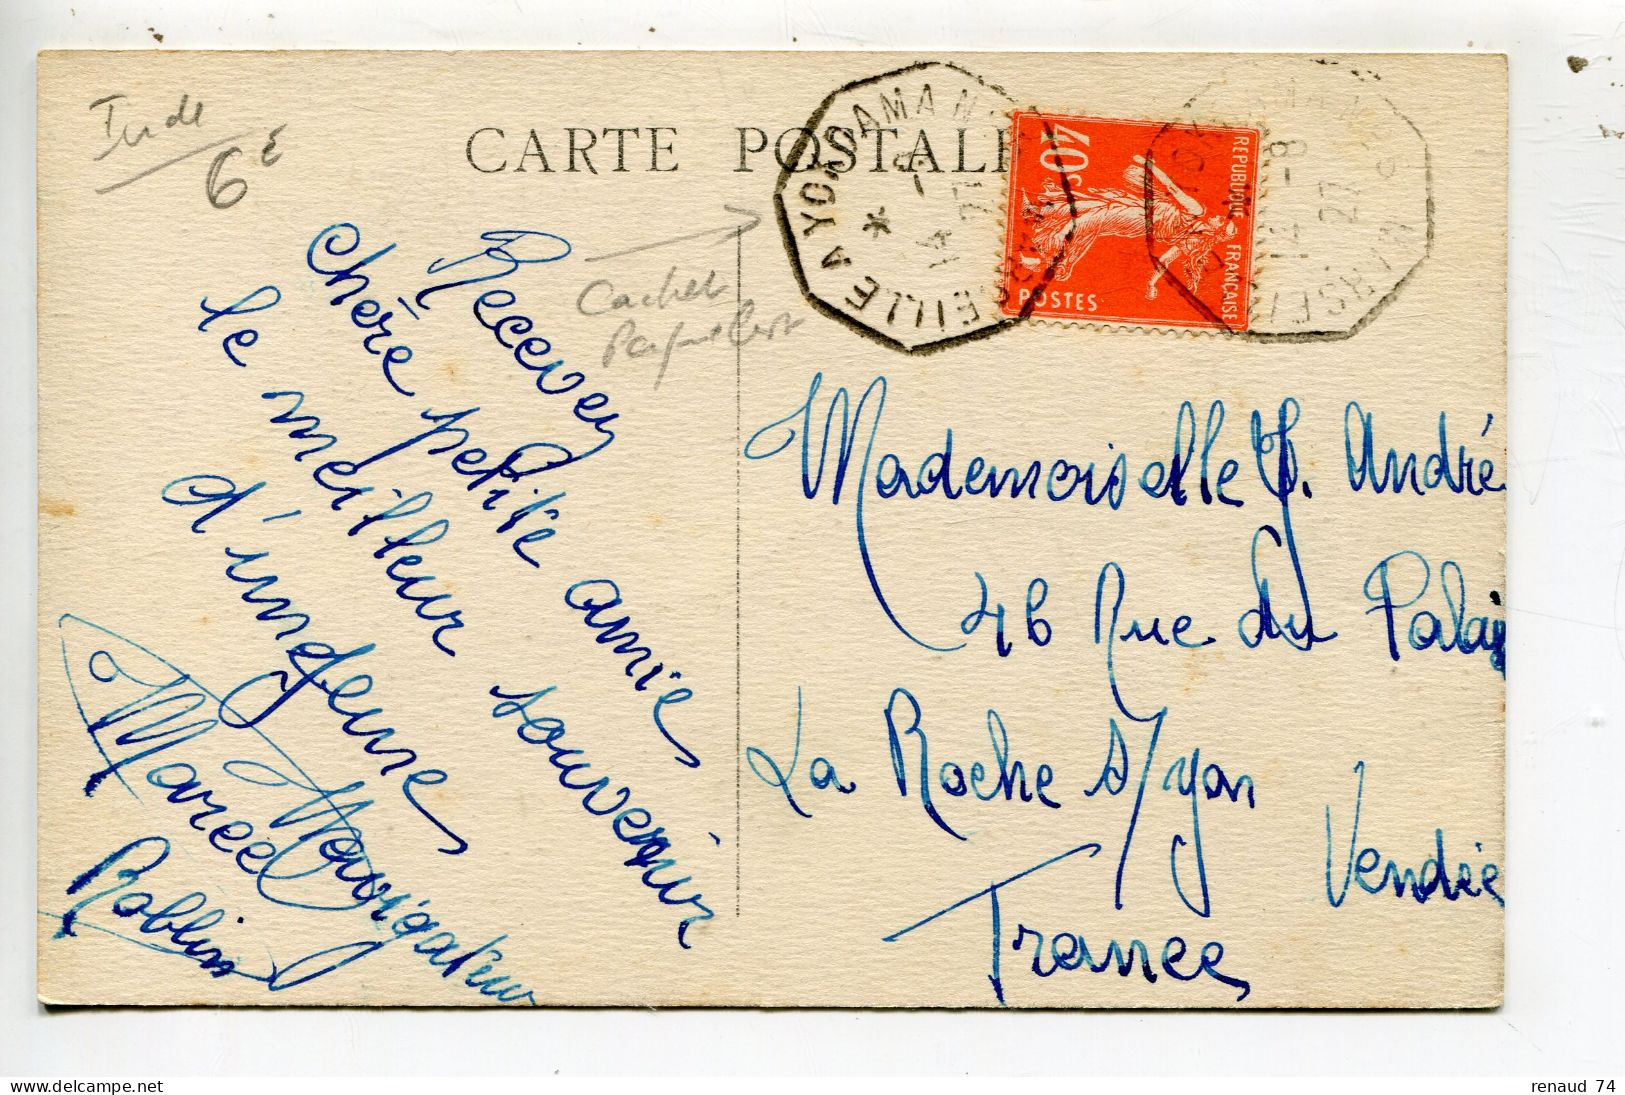 Inde
6€
CARTE POSTALE
Cachet
Paquebot
MARSEILLE A YOKOHAMA N
*
14 -8
27
MARSEILLE A YOKOHAMA
12 -8
27
REPUBLIQUE FRANÇAISE
40c
POSTES
Recevez
chère petite amie
le meilleur souvenir
d'un jeune Navigateur
Marcel
Roblin
Mademoiselle Y. André
46 Rue du Palais
La Roche s/yon
Vendée
France
renaud 74